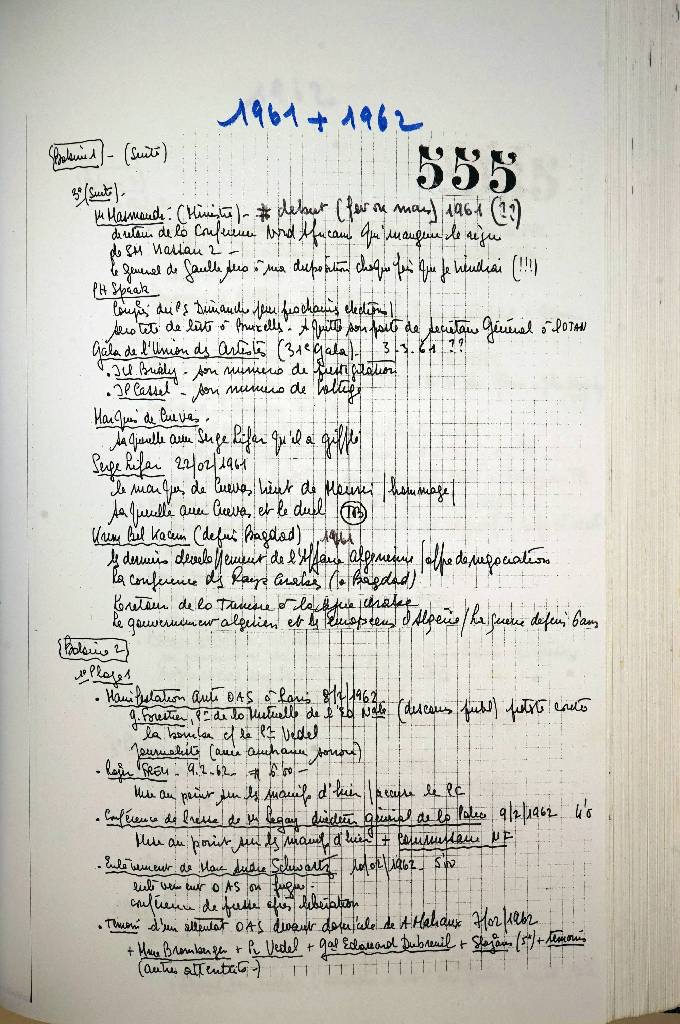 1961 + 1962
Bobine 1 - (Suite)
555
3° (Suite) -
Mr Masmoudi : (Ministre) - # debut (fev ou mars) 1961 (??)
de retour de la Conférence Nord Africaine qu'inaugure le règne
de SM Hassan 2 -
le général de Gaulle sera à ma disposition chaque fois que je viendrai (!!!)
PH Spaak
Congrès du PS Dimanche pour prochaines elections
sera tête de liste à Bruxelles. A quitté son poste de secrétaire Général à l'OTAN
Gala de l'Union des Artistes (31e Gala). 3-3-61 ??
• JCl Brialy - son numero de prestigitation
• JP Cassel - son numero de voltige
Marquis de Cuevas -
sa querelle avec Serge Lifar qu'il a giflé
Serge Lifar 22/02/1961
le marquis de Cuevas vient de Mourir / hommage /
sa querelle avec Cuevas et le duel TB
Krim Bel Kacem (depuis Bagdad) 1961
les derniers developpement de l'Affaire Algerienne / offre de negociations
La conférence des Pays Arabes (à Bagdad)
Le retour de la Tunisie à la ligue arabe
Le gouvernement algerien et les européens d'Algérie / La guerre depuis 6 ans
Bobine 2
1° Plage 1
• Manifestation Anti OAS à Paris 8/2/1962
G. Forestier, Pt de la Mutuelle de l'Ed Nale (discours public) proteste contre
la bombe c/ le Pr Vedel
Journaliste (avec ambiance sonore)
• Roger FREY - 9.2.62 - # 6'00 -
Mise au point sur les manifs d'hier / accuse le PC
• Conférence de Presse de Mr Legay directeur général de la Police 9/2/1962 4'0
Mise au point sur les manifs d'hier + commissaire
• Enlèvement de Marc André Schwartz 10/02/1962 - 5'00
enlevement OAS ou fugue -
conférence de presse après libération
• Temoins d'un attentat OAS devant domicile de A Malraux 7/02/1962
+ Mme Bromberger + Pr Vedel + Gal Edouard Dubreuil + + temoins
(autres attentats -)